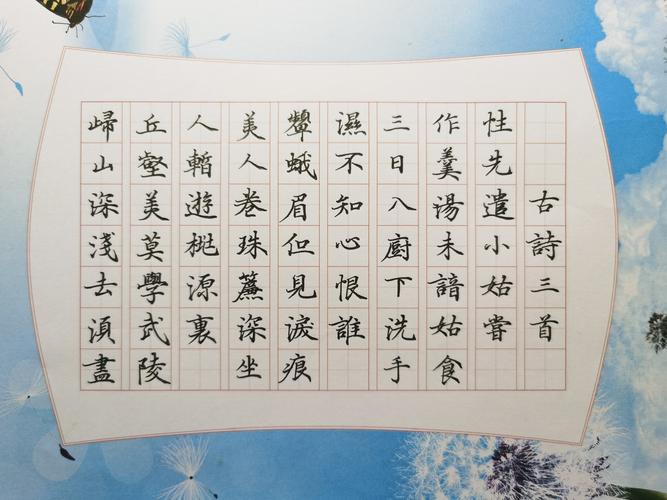 歸山深淺去須盡
丘壑美莫學武陵
人暫遊桃源裏
美人卷珠簾深坐
顰蛾眉但見淚痕
濕不知心恨誰
三日入廚下洗手
作羹湯未諳姑食
性先遣小姑嘗
古詩三首